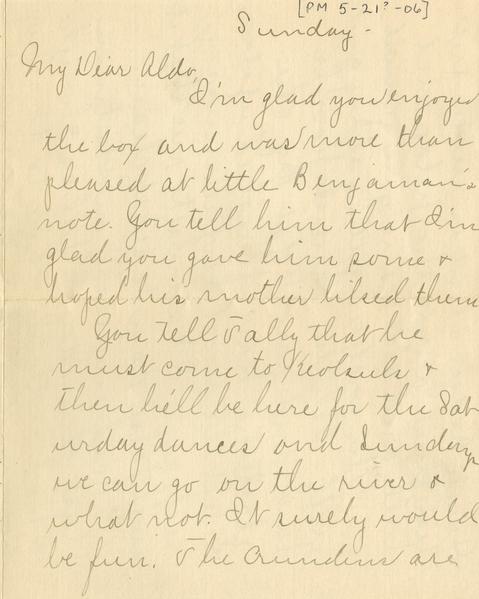 [PM 5-21?-06]
Sunday -
My Dear Aldo,
I'm glad you enjoyed
the box and was more than
pleased at little Benjaman's
note. You tell him that I'm
glad you gave him some &
hoped his mother liked them
You tell Sally that he
must come to &
then he'll be here for the Sat
urday dances and Sundays
we can go on the river &
what not. It surely would
be fun. The are